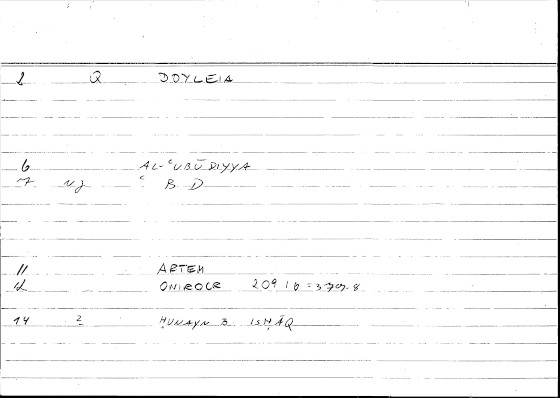 1 Q DOYLEIA
6 AL-ʿUBŪDIYYA
7 ʿ B D
11 ARTEM
12 ONIROCR 209 16 =
14 2 ḤUNAYN B. ISḤĀQ